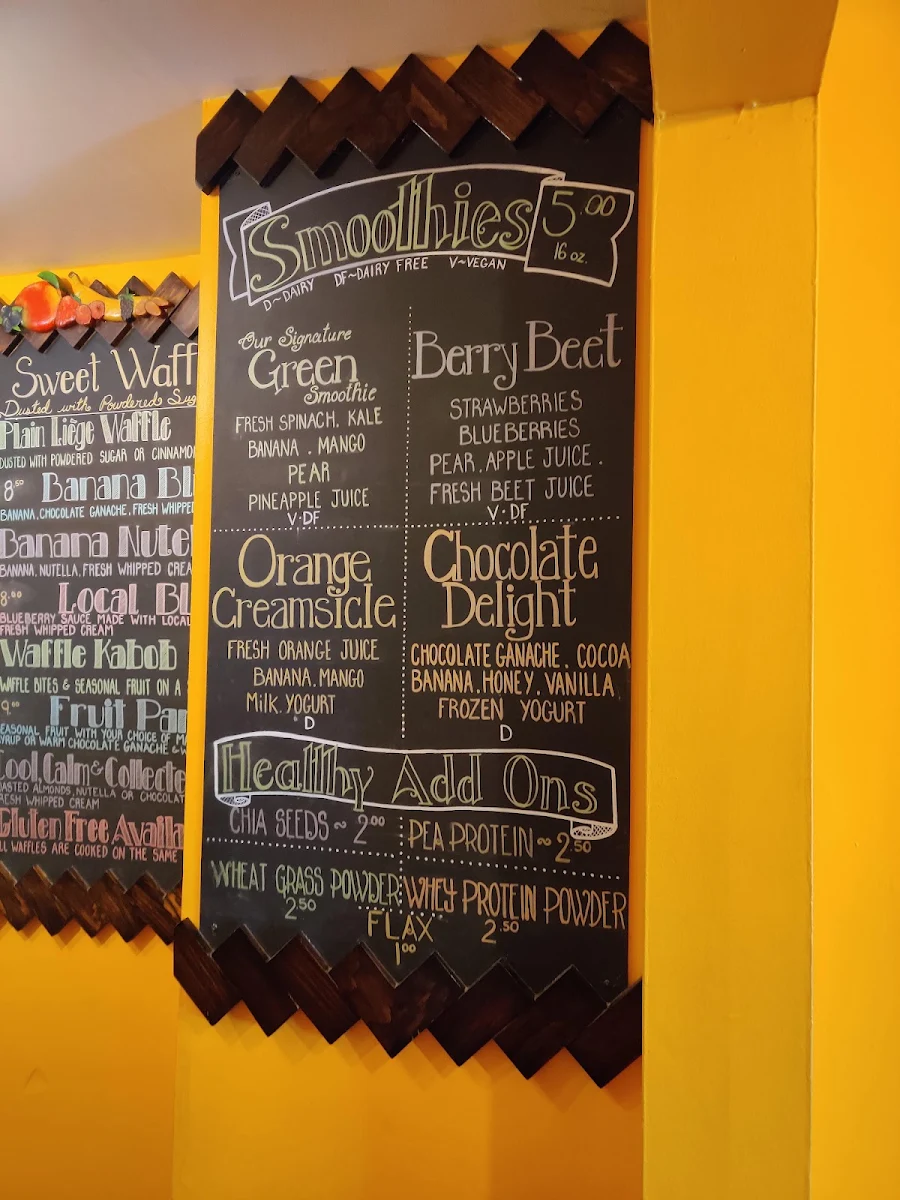 Sweet Waff
Dusted with Powdered Sug
Plain Liège Waffle
DUSTED WITH POWDERED SUGAR OR CINNAMO
8.50 Banana Bl
BANANA, CHOCOLATE GANACHE, FRESH WHIPPE
Banana Nute
BANANA, NUTELLA, FRESH WHIPPED CREA
8.00 Local Bl
BLUEBERRY SAUCE MADE WITH LOCAL
FRESH WHIPPED CREAM
Waffle Kabob
WAFFLE BITES & SEASONAL FRUIT ON A
Fruit Par
SEASONAL FRUIT WITH YOUR CHOICE OF
SYRUP OR WARM CHOCOLATE GANACHE &
Cool, Calm & Collecte
ROASTED ALMONDS, NUTELLA OR CHOCOLAT
FRESH WHIPPED CREAM
Gluten Free Availa
ALL WAFFLES ARE COOKED ON THE SAME
Smoothies 5.00
16 oz.
D~DAIRY DF~DAIRY FREE V~VEGAN
Our Signature
Green
Smoothie
FRESH SPINACH, KALE
BANANA, MANGO
PEAR
PINEAPPLE JUICE
V·DF
Berry Beet
STRAWBERRIES
BLUEBERRIES
PEAR, APPLE JUICE,
FRESH BEET JUICE
V·DF
Orange
Creamsicle
FRESH ORANGE JUICE
BANANA, MANGO
Milk, YOGURT
D
Chocolate
Delight
CHOCOLATE GANACHE, COCOA
BANANA, HONEY, VANILLA
FROZEN YOGURT
D
Healthy Add Ons
CHIA SEEDS ~ 2.00
PEA PROTEIN ~ 2.50
WHEAT GRASS POWDER
2.50
WHEY PROTEIN POWDER
2.50
FLAX
1.00